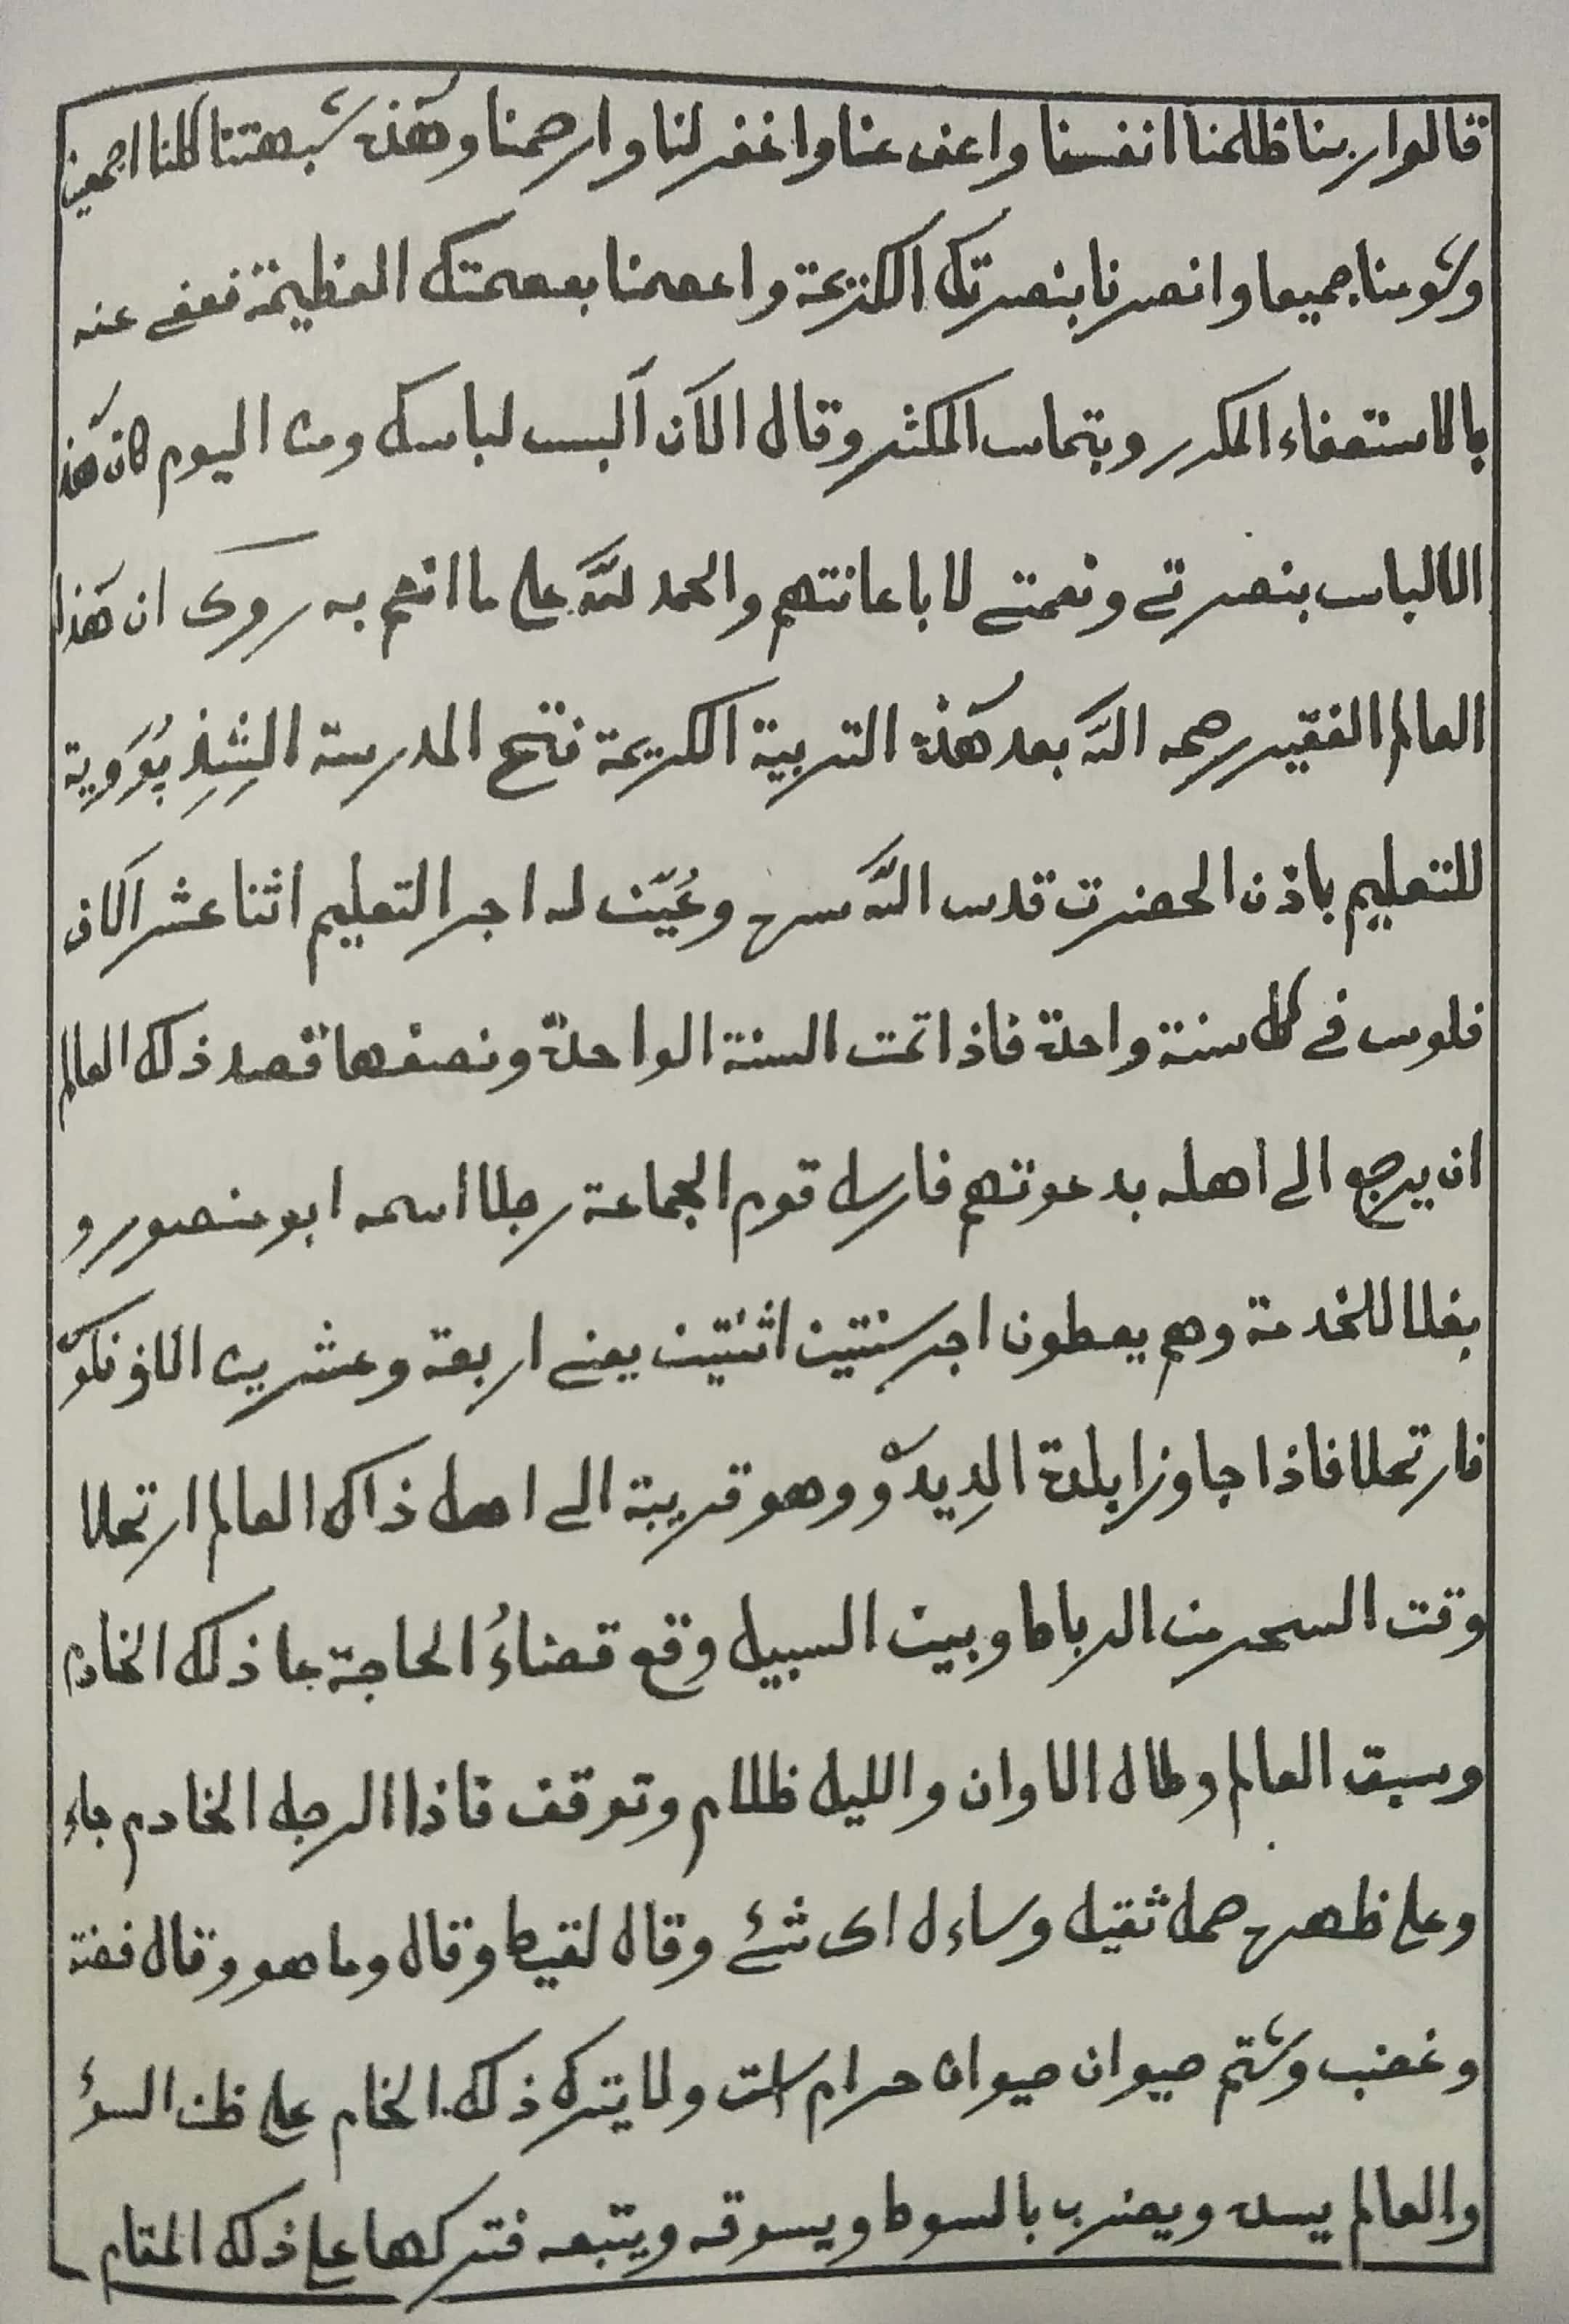 قالوا ربنا ظلمنا انفسنا واعف عنا واغفر لنا وارحمنا وهذه شبهتنا كلنا اجمعين
وشومنا جميعا وانصرنا بنصرتك الكريمة واعصمنا بعصمتك العظيمة نعفى عنه
بالاستعفاء المكرر وبتماس المكثر وقال الآن ألبس لباسك ومن اليوم كان هذ
الالباس بنصرتي ونعمتي لا باعانتهم والحمد لله على ما انعم به روى ان هذا
العالم الفقير رحمه الله بعد هذه التربية الكريمة فتح المدرسة الشِذِپُورَوِية
للتعليم باذن الحضرت قدس الله سره وعُيّن له اجر التعليم اثنا عشر آلاف
فلوس في كل سنة واحدة فاذا تمت السنة الواحدة ونصفها قصد ذلك العالم
ان يرجع الى اهله بدعوتهم فارسل قوم الجماعة رجلا اسمه ابو منصور و
بغلا للخدمة وهم يعطون اجر سنتين اثنتين يعني اربعة وعشرين الاف فلوس
فارتحلا فاذا جاوزا بلدة الدِيدَوْ وهو قريبة الى اهل ذاك العالم ارتحلا
وقت السحر من الرباط وبين السبيل وقع قضاءُ الحاجة عا ذلك الخادم
وسبق العالم وطال الاوان والليل ظلام وتوقف فاذا الرجل الخادم جاء
وعلى ظهره حمل ثقيل وساءل اى شئ وقال لقيط وقال وما هو وقال ففة
وغضب وشتم حيوان حيوان حرام است ولا يترك ذلك الخام على ظن السوء
والعالم يسبه ويضرب بالسوط ويسوقه ويتبعه فتركها على ذلك المقام